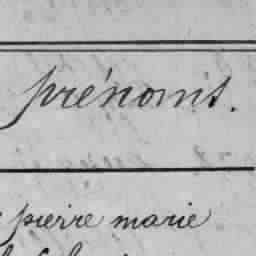 prénoms.
pierre marie